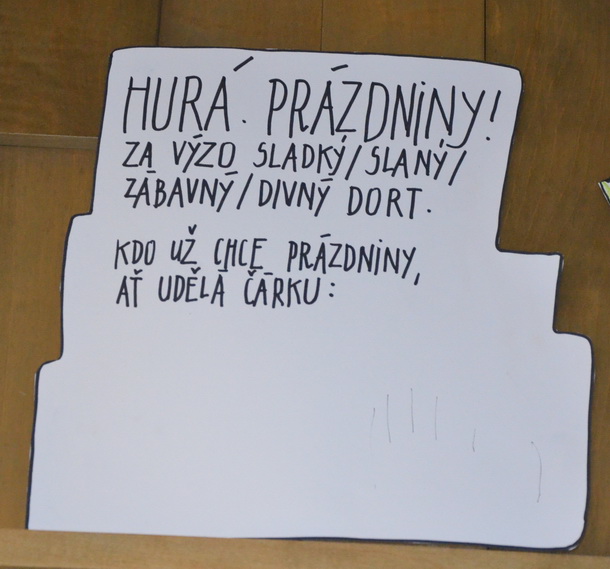 HURÁ. PRÁZDNINY!
ZA VÝZO SLADKÝ/SLANÝ/
ZÁBAVNÝ/DIVNÝ DORT.
KDO UŽ CHCE PRÁZDNINY,
AŤ UDĚLÁ ČÁRKU: